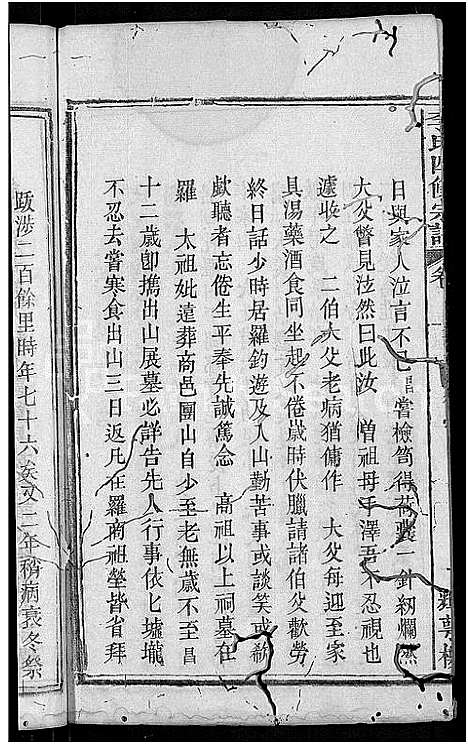 李氏四修宗譜 卷一
日與家人泣言不已昌嘗檢笥得荷囊一針紉爛然
大父瞥見泫然曰此汝 曾祖母手澤吾不忍視也
遽收之 二伯大父老病猶傭作 大父母迎至家
具湯藥酒食同坐起不倦歲時伏臘請諸伯父歡勞
終日話少時居羅鈞遊及入山勤苦事或談笑或欷
歔聽者忘倦生平奉先誠篤念 高祖以上祠墓在
羅 太祖妣遠葬商邑團山自少至老無歲不至昌
十二歲即攜出山展墓必詳告先人行事依匕墟壠
不忍去嘗寒食出山三日返凡在羅商祖塋皆省拜
跋涉二百餘里時年七十六矣又二年稍病衰冬祭